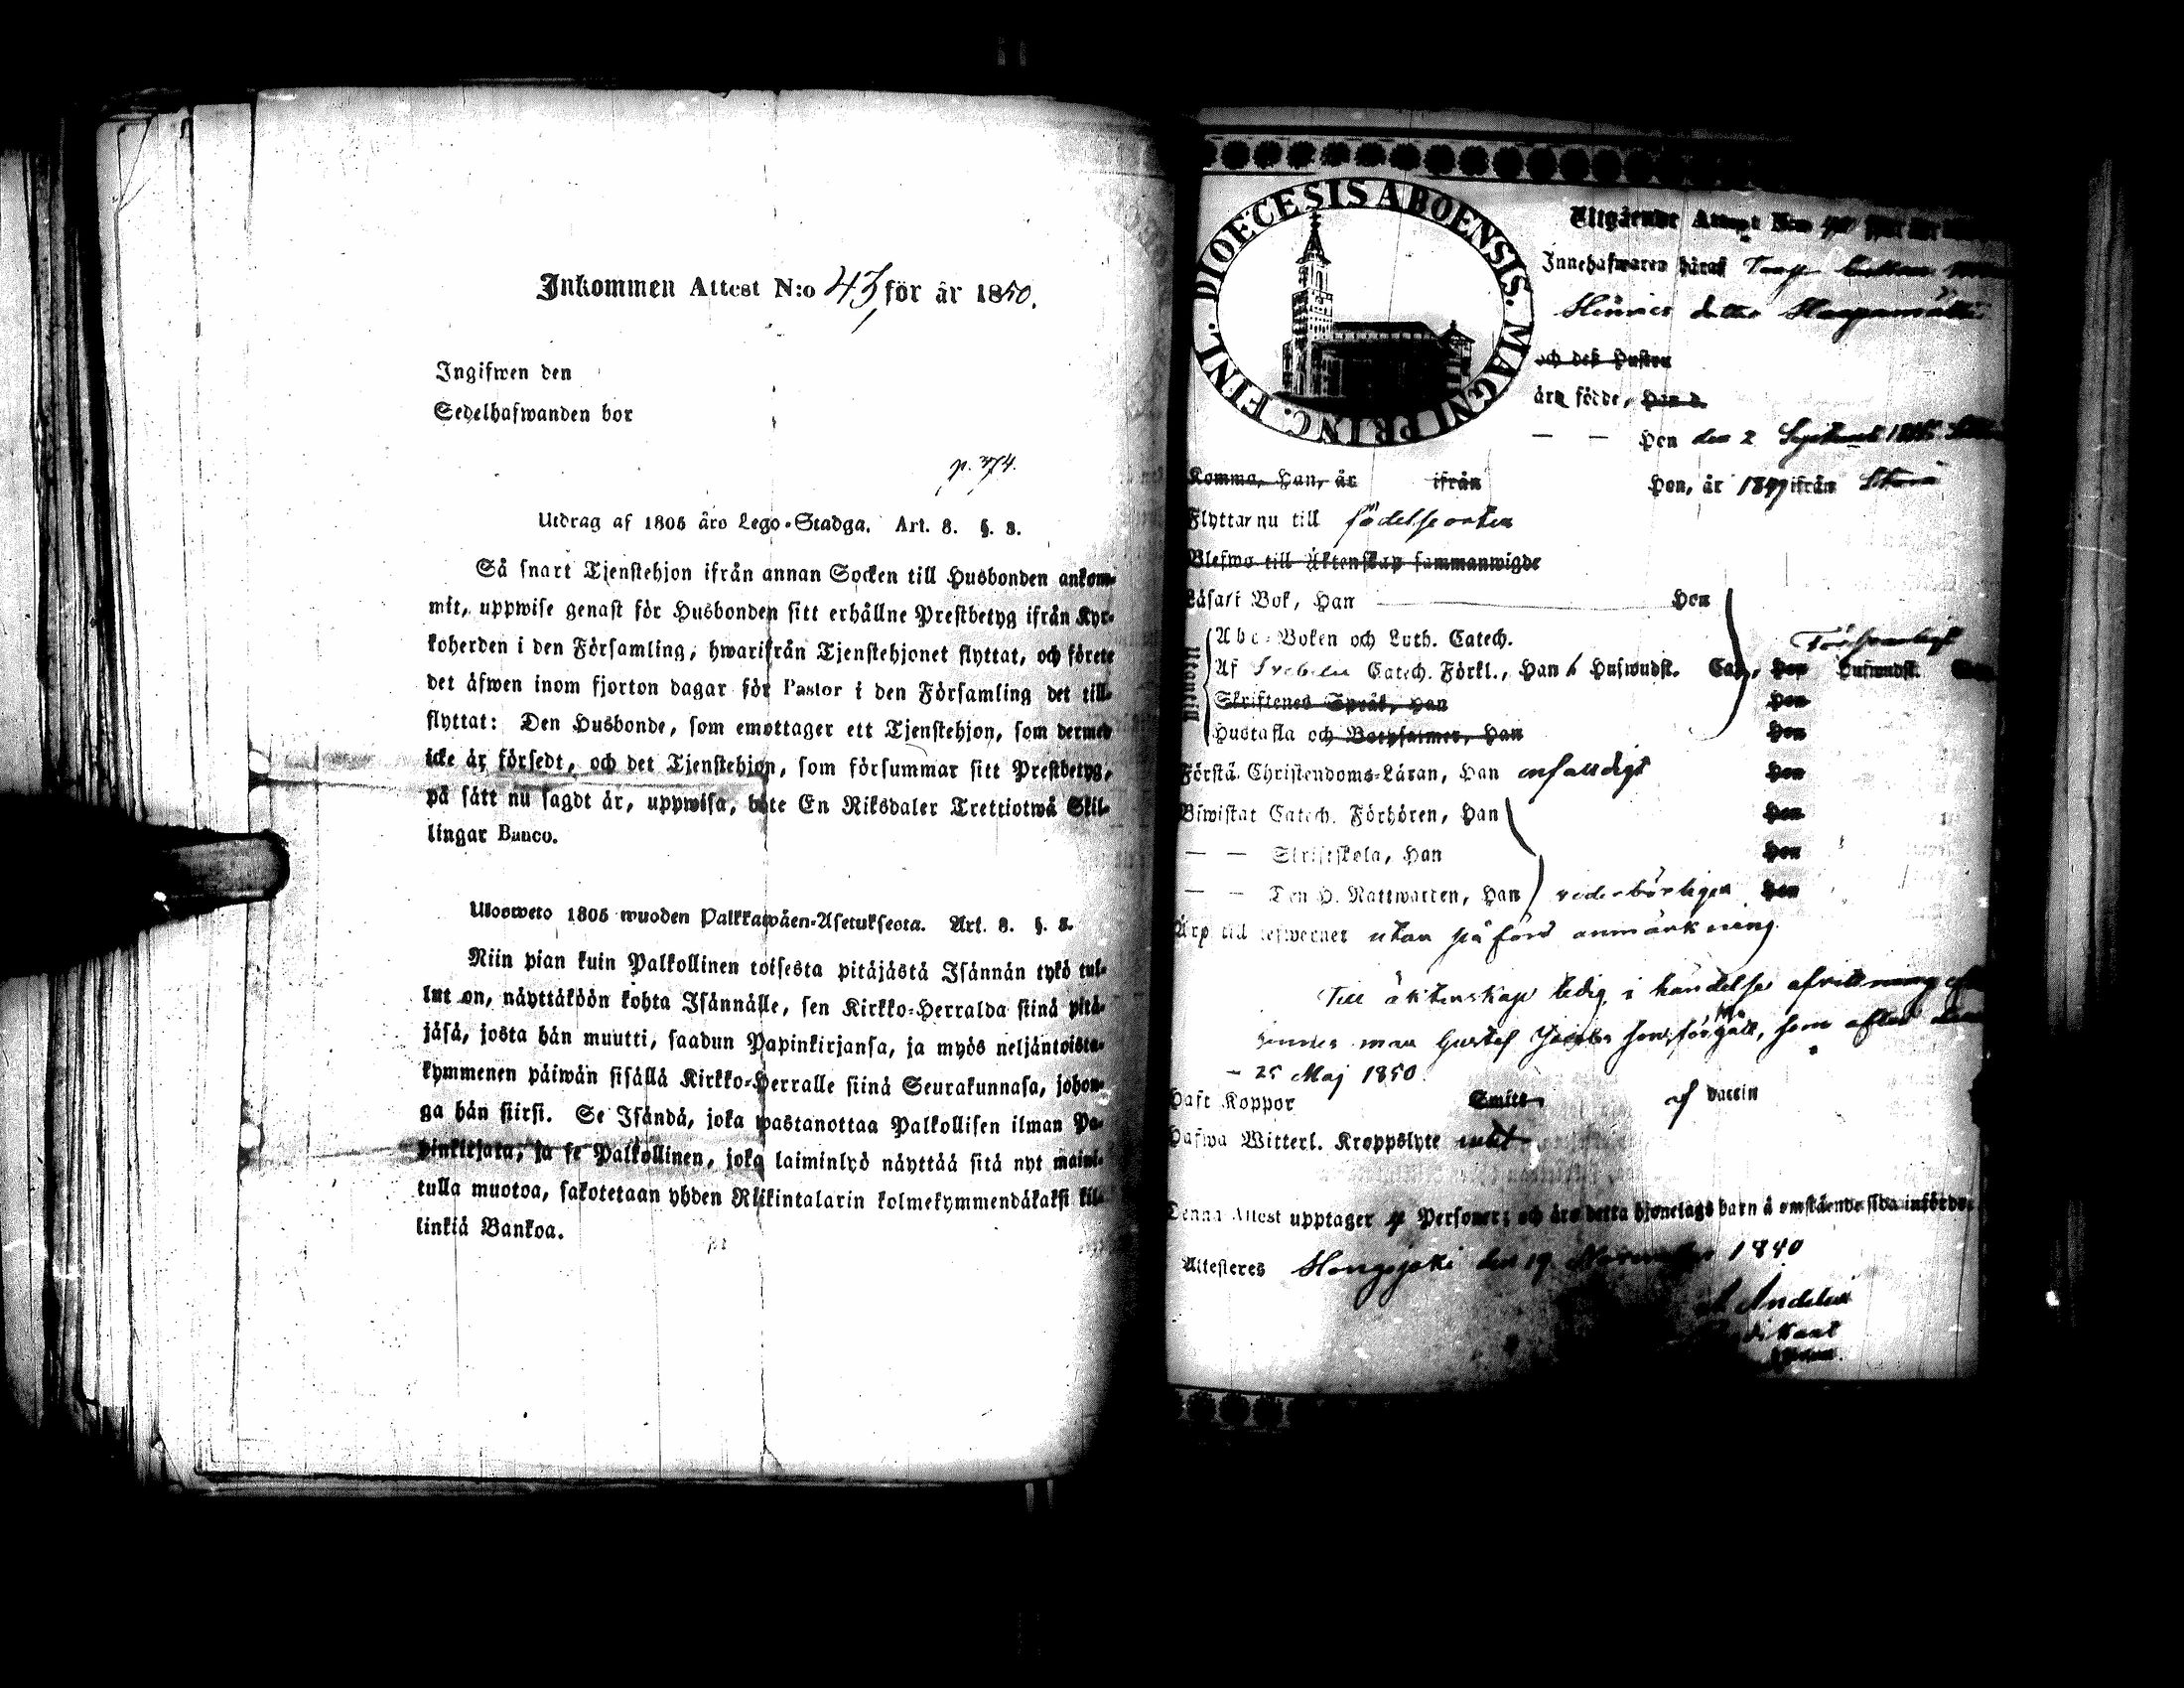 Inkommen Attest N:o 43, för år 1850.
Ingifwen den
Sedelhafwanden bor
p. 374.
Utdrag af 1805 åro Lego-Stadga. Art. 8. §. 8.
Så snart Tjenstehjon ifrån annan Socken till Husbonden ankom-
mit, uppwise genast för Husbonden sitt erhållne Prestbetyg ifrån Kyr-
koherden i den Församling, hwarifrån Tjenstehjonet flyttat, och förete
det äfwen inom fjorton dagar för Pastor i den Församling det till-
flyttat: Den Husbonde, som emottager ett Tjenstehjon, som dermed
icke är försedt, och det Tjenstehjon, som försummar sitt Prestbetyg,
på sätt nu sagdt är, uppwisa, böte En Riksdaler Trettiotwå Skil-
lingar Banco.
Uloosweto 1805 wuoden Palkkawäen-Asetuksesta. Art. 8. §. 8.
Niin pian kuin Palkollinen toisesta pitäjästä Isännän tykö tul-
lut on, näyttäköön kohta Isännälle, sen Kirkko-Herralda siinä pitä-
jäsä, josta hän muutti, saadun Papinkirjansa, ja myös neljäntoista-
kymmenen päiwän sisällä Kirkko-Herralle siinä Seurakunnasa, johon-
ga hän siirsi. Se Isändä, joka wastanottaa Palkollisen ilman Pa-
pinkirjata, ja se Palkollinen, joka laiminlyö näyttää sitä nyt maini-
tulla muotoa, sakotetaan yhden Riikintalarin kolmekymmendäkaksi kil-
linkiä Bankoa.
DIOECESIS ABOENSIS. MAGNI PRINC. FINL.
Utgående Attest N:o
Innehafwaren häraf
Henrics dotter
och deß Hustru
äro födde, Han d.
— — Hon den 2 September
Komma, Han, år ifrån Hon, år 1849 ifrån
Flyttar nu till födelseorten
Blefwo till Äktenskap sammanwigde
Läsa i Bok, Han Hon
Utantill
Abc-Boken och Luth. Catech.
Af Svebelii Catech. Förkl., Han 6 Hufwudst. Cap., Hon Hufwudst.
Skriftenes Språk, Han Hon
Hustafla och Botpsalmer, Han Hon
Förstå Christendoms-Läran, Han enfaldigt Hon
Biwistat Catech. Förhören, Han Hon
— — Skriftskola, Han Hon
— — Den H. Nattwarden, Han vederbörligen Hon
till lefwernet utan påförd anmärkning.
Till äktenskap ledig i händelse
man Gustef som efter
- 25 Maj 1850.
Haft Koppor Smitt vaccin
Hafwa Witterl. Kroppslyte
Denna Attest upptager Personer; och äro detta hjonelags barn å omstående sida införde.
Attesteres Hongojoki den 19 November 1840